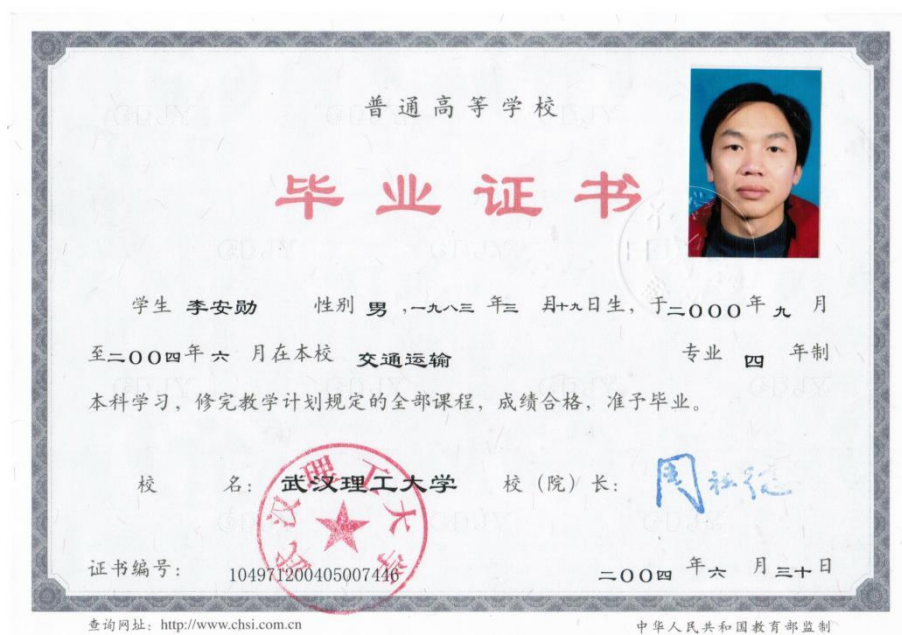 普通高等学校
毕业证书
学生 李安勋 性别 男 ,一九八三 年三 月十九日生，于二000年 九 月
至二00四年 六 月在本校 交通运输 专业 四 年制
本科学习，修完教学计划规定的全部课程，成绩合格，准予毕业。
校 名： 武汉理工大学 校（院）长：
武汉理工大学
证书编号： 104971200405007446 二00四 年六 月三十日
查询网址：http://www.chsi.com.cn 中华人民共和国教育部监制